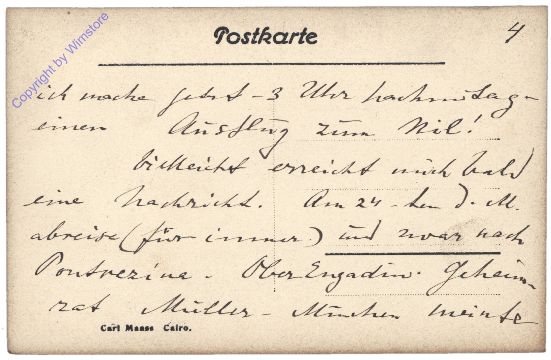 Postkarte
4
Copyright by Wimstore
ich mache jetzt - 3 Uhr nachmittag -
einen Ausflug zum Nil!
Vielleicht erreicht mich bald
eine Nachricht. Am 24 - ten d. M.
abreise (für immer) und zwar nach
Pontresina - Ober Engadin. Geheim-
rat Müller - München meinte
Carl Maass Cairo.